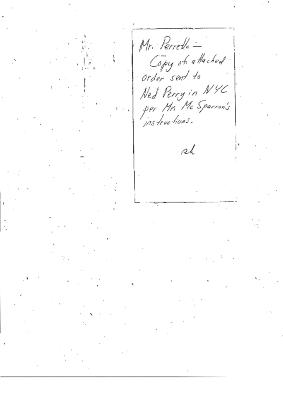 Mr. Perretti —
Copy of attached
order sent to
Ned Perry in NYC
per Mr. McSparran's
instructions.
sh